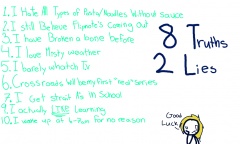 1. I Hate All Types of Pasta/Noodles Without sauce
2. I still Believe Flipnote's Coming Out
3. I have Broken a bone before
4. I Love Misty weather
5. I barely whatch Tv
6. Crossroads will be my first "real" series
7. I Get Strait A's in School
9. I actually LIKE Learning
10. I woke up at 4 for no reason
8 Truths
2 Lies
Good
Luck